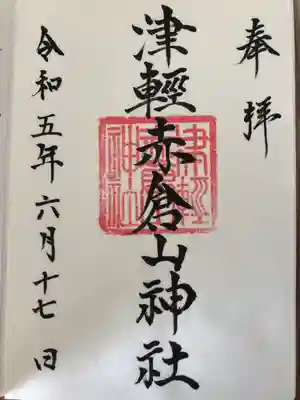 奉拝
津輕赤倉山神社
令和五年六月十七日